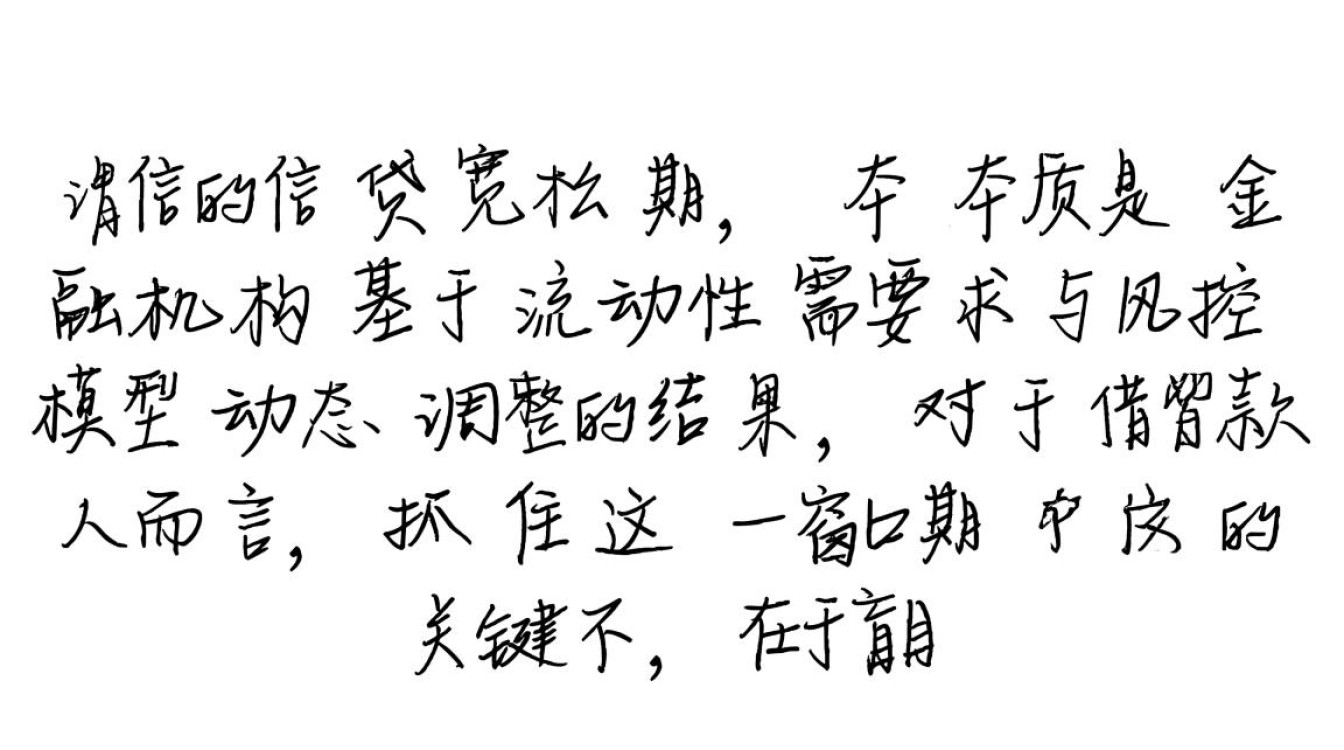 谓信的信贷宽松期，本本质是金
融机构基于流动性需要求与风控
模型动态调整的结果，对于借款
人而言，抓住这一窗口期的
关键不，在于盲目